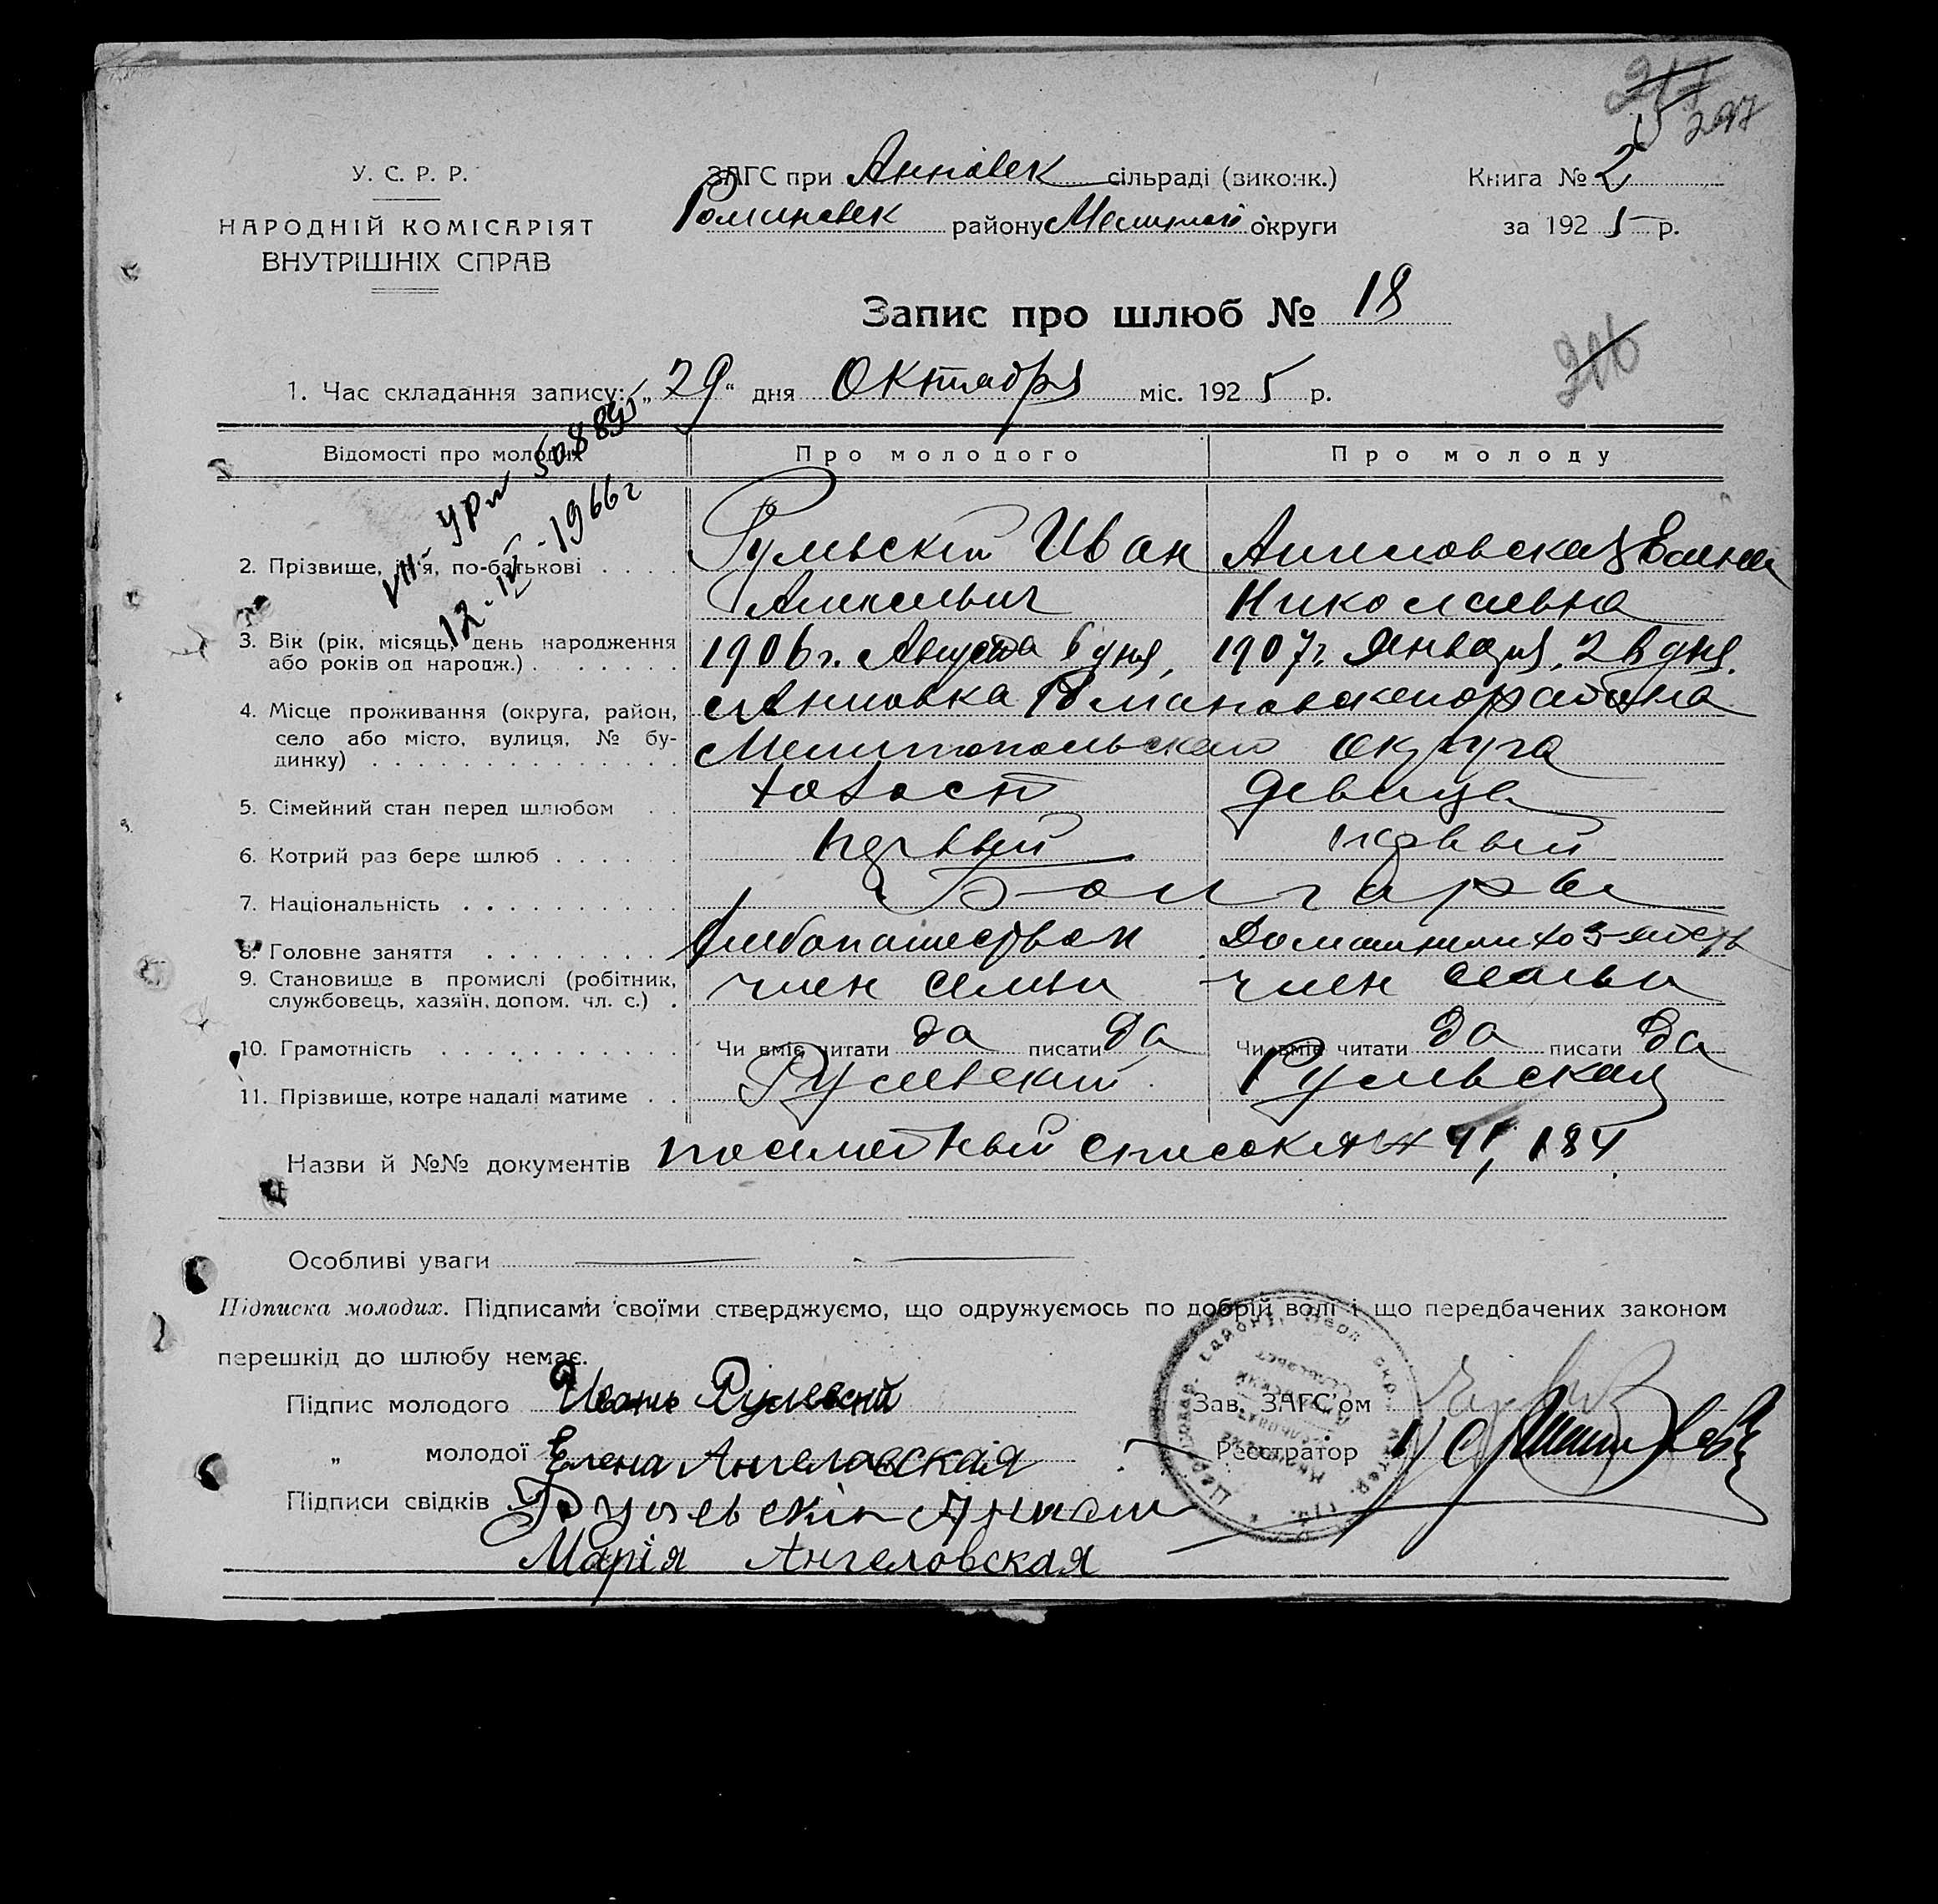 297
У. С. Р. Р.
НАРОДНІЙ КОМІСАРІЯТ
ВНУТРІШНІХ СПРАВ
ЗАГС при Анновск сільраді (виконк.)
Романовск району Мелитоп округи
Книга № 2
за 1925 р.
Запис про шлюб № 18
206
1. Час складання запису: „29“ дня Октября міс. 1925 р.
Відомості про молодих
Про молодого
Про молоду
12-IV-1966 г
2. Прізвище, ім'я, по-батькові . . . .
Рульскій Иван
Ангиловская Елена
Николаевна
3. Вік (рік, місяць, день народження
або років од народж.) . . . . . . .
1906 г. Августа 6 дня,
1907 г. Января, 2 дня.
4. Місце проживання (округа, район,
село або місто, вулиця, № бу-
динку) . . . . . . . . . . . . . .
с Анновка Романовского района
Мелитопольской округа
5. Сімейний стан перед шлюбом . .
холост
девица
6. Котрий раз бере шлюб . . . . . .
первый
первый
7. Національність . . . . . . . . . .
Болгары
8. Головне заняття . . . . . . . . .
хлебопашеством
Домашним
9. Становище в промислі (робітник,
службовець, хазяїн, допом. чл. с.) .
член семьи
член семьи
10. Грамотність . . . . . . . . . . .
Чи вміє читати да писати да
Чи вміє читати да писати да
11. Прізвище, котре надалі матиме . .
Рульский
Рульская
Назви й №№ документів посемейный список 184
Особливі уваги
Підписка молодих. Підписами своїми стверджуємо, що одружуємось по добрій волі і що передбачених законом
перешкід до шлюбу немає.
Підпис молодого Иванъ Рулевский
„ молодої Елена Ангеловская
Підписи свідків Рульскій
Марія Ангеловская
Зав. ЗАГС'ом
Реєстратор